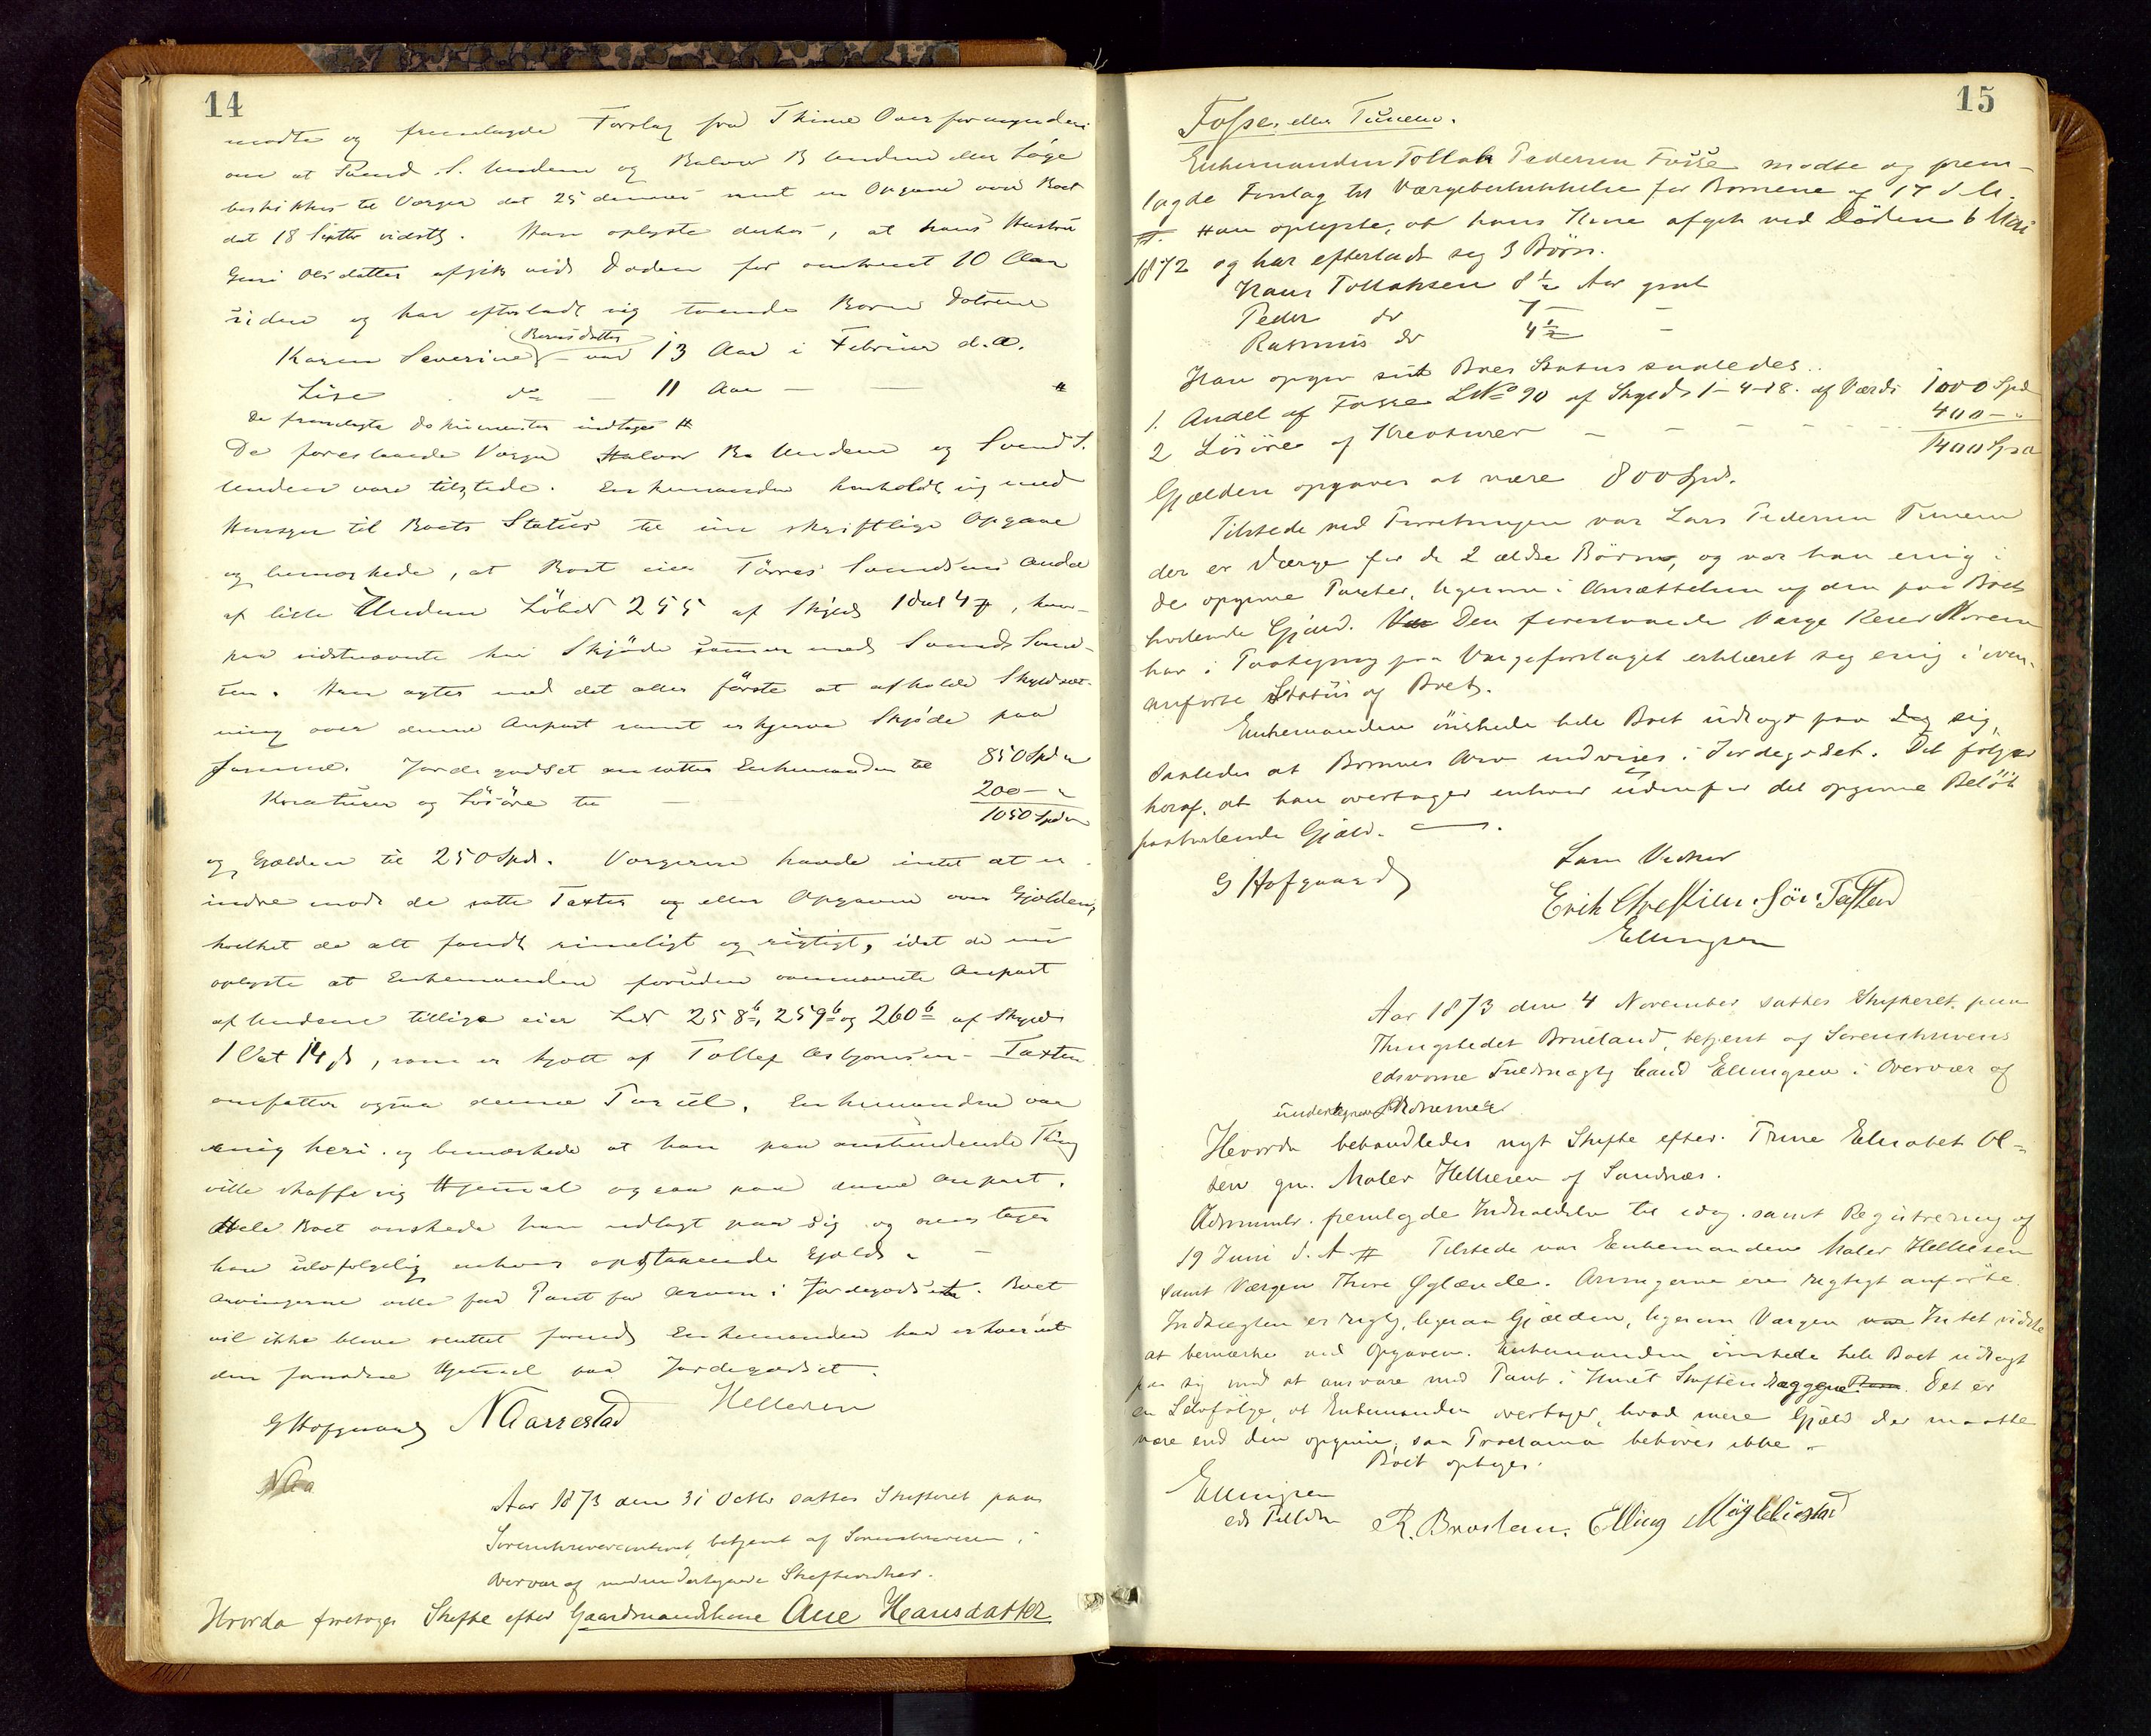 14
mødte og fremlagde Forslag fra Thime Overformynderi
om at Svend S. Undem og Halvor B Undem eller Løge
beskikkes til Værger dat 25 dennes samt en Opgave over Boet
dat 18 Septbr sidstl. Han oplyste derhos, at hans Hustru
Guri Olsdatter afgik ved Døden for omtrent 10 Aar
siden og har efterladt sig tvende Børn Døtrene
Karen Severine Berntsdatter var 13 Aar i Februar d.A.
Lise do — 11 Aar — —
De fremlagte Dokumenter indtages #
De foreslaaede Værger Halvor B. Undem og Svend S.
Undem vare tilstede. Enkemanden henholdt sig med
Hensyn til Boets Status til sin skriftlige Opgave
og bemærkede, at Boet eier Tørres Svendsens Andel
af lille Undem Løbeno 255 af Skyld 1 dal 4 β, hvor-
paa sidstnævnte har Skjøde sammen med Svend Svend-
sen. Han agter med det aller første at afholde Skyldsæt-
ning over denne Anpart samt erhverve Skjøde paa
samme. Jordegodset ansatte Enkemanden til 850 Spd
Kreaturer og Løsøre til — 200 —
1050 Spd
og Gjælden til 250 Spd. Værgerne havde intet at er-
indre mod de satte Taxter og eller Opgaven over Gjælden,
hvilket de alt fandt rimeligt og rigtigt, idet de
oplyste at Enkemanden foruden ovennævnte Anpart
af Undem tillige eier Lno 258b, 259b og 260b af Skyld
1 Ort 14 β, som er kjøbt af Tollef Asbjørnsen — Taxten
omfatter ogsaa denne Parcel. Enkemanden var
enig heri og bemærkede at han paa anstundende Thing
ville skaffe sig Hjemmel ogsaa paa denne Anpart.
Hele Boet ønskede han udlagt paa sig og overtager
han selvfølgelig enhver opstaaende Gjæld. —
Arvingerne ville faa Pant for Arven i Jordegodset. Boet
vil ikke blive sluttet forinden Enkemanden har erhvervet
den fornødne Hjemmel paa Jordegodset.
G Hofgaard N Aarrestad Helleren
Aar 1873 den 31 Octbr sattes Skifteret paa
Sorenskrivercontoret, betjent af Sorenskriveren i
Overvær af medundertegnede Skiftevidner.
Hvorda foretoges Skifte efter Gaardmandskone Ane Hansdatter
15
Fosse eller Tunem.
Enkemanden Tollak Pedersen Fosse mødte og frem-
lagde Forslag til Værgebeskikkelse for Børnene af 17 d.M.
#. Han oplyste, at hans Kone afgik ved Døden 6 Mai
1872 og har efterladt sig 3 Børn.
Hans Tollaksen 8½ Aar gml
Peder do 7 — —
Rasmus do 4½ —
Han opgav sit Boes Status saaledes.
1. Andel af Fosse LNo 90 af Skyld 1-4-18. af Værdi 1000 Spd
2 Løsøre og Kreaturer — — — — 400 —
1400 Spd
Gjælden opgaves at være 800 Spd.
Tilstede ved Forretningen var Lars Pedersen Tunem
der er Værge for de 2 ældre Børn, og var han enig i
de opgivne Taxter, ligesom i Ansættelsen af den paa Boet
heftende Gjæld. Den foreslaaede Værge Norem
har i Paategning paa Værgeforslaget erklæret sig enig i oven-
anførte Status af Boet.
Enkemanden ønskede hele Boet udlagt paa sig,
saaledes at Børnenes Arv indvises i Jordegodset. Det følger
heraf, at han overtager enhver udenfor det opgivne Beløb
paahvilende Gjæld. —
G Hofgaard
Som Vidner
Erik Chrestian Sør Tasten
Ellingsen
Aar 1873 den 4 November sattes Skifteret paa
Thingstedet Brueland, betjent af Sorenskriverens
edsvorne Fuldmægtig Cand Ellingsen i Overvær af
undertegnede Vidner
Hvorda behandledes nyt Skifte efter Trine Elisabet Ol-
sen gm. Maler Hellesen af Sandnæs.
Adminstr. fremlagde Indkaldelse til idag samt Registrering af
19 Juni d.A. # Tilstede var Enkemanden Maler Hellesen
samt Værgen Thore Øglænde. Arvingerne ere rigtigt anførte.
Indtægten er rigtig, ligesaa Gjælden, ligesom Værgen Intet vidste
at bemærke ved Opgaven. Enkemanden ønskede hele Boet udlagt
paa sig mod at ansvare med Pant i Huset Det er
en Selvfølge, at Enkemanden overtager, hvad mere Gjæld der maatte
være end den opgivne, saa Proclama behøves ikke. —
Boet optages.
Ellingsen
eds Fuldm R. Elling